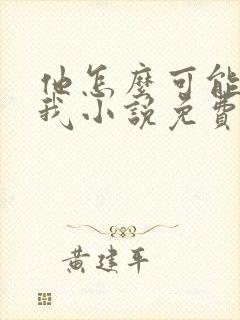 他怎麼可能
我小說免費
黃建平